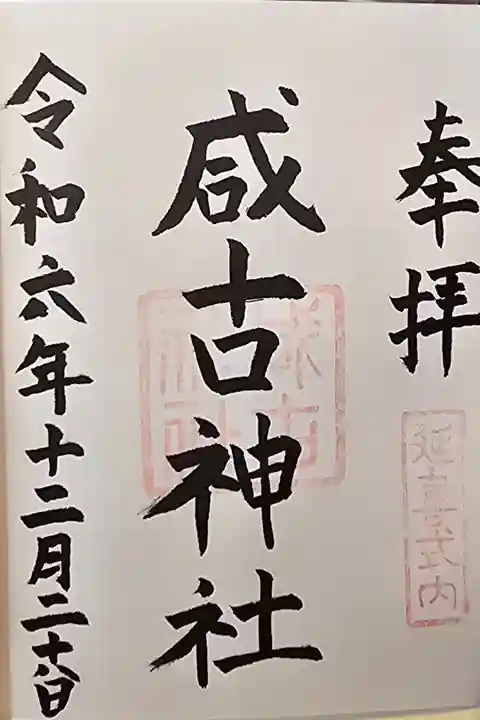 奉拝
延喜式内
咸古神社
令和六年十二月二十八日